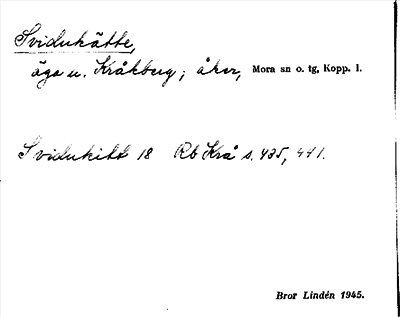 Svidukätte,
ägo u. Kråkberg; åker, Mora sn o. tg, Kopp. l.
Svidukitt 18 Rb Krå s. 435, 441.
Bror Lindén 1945.